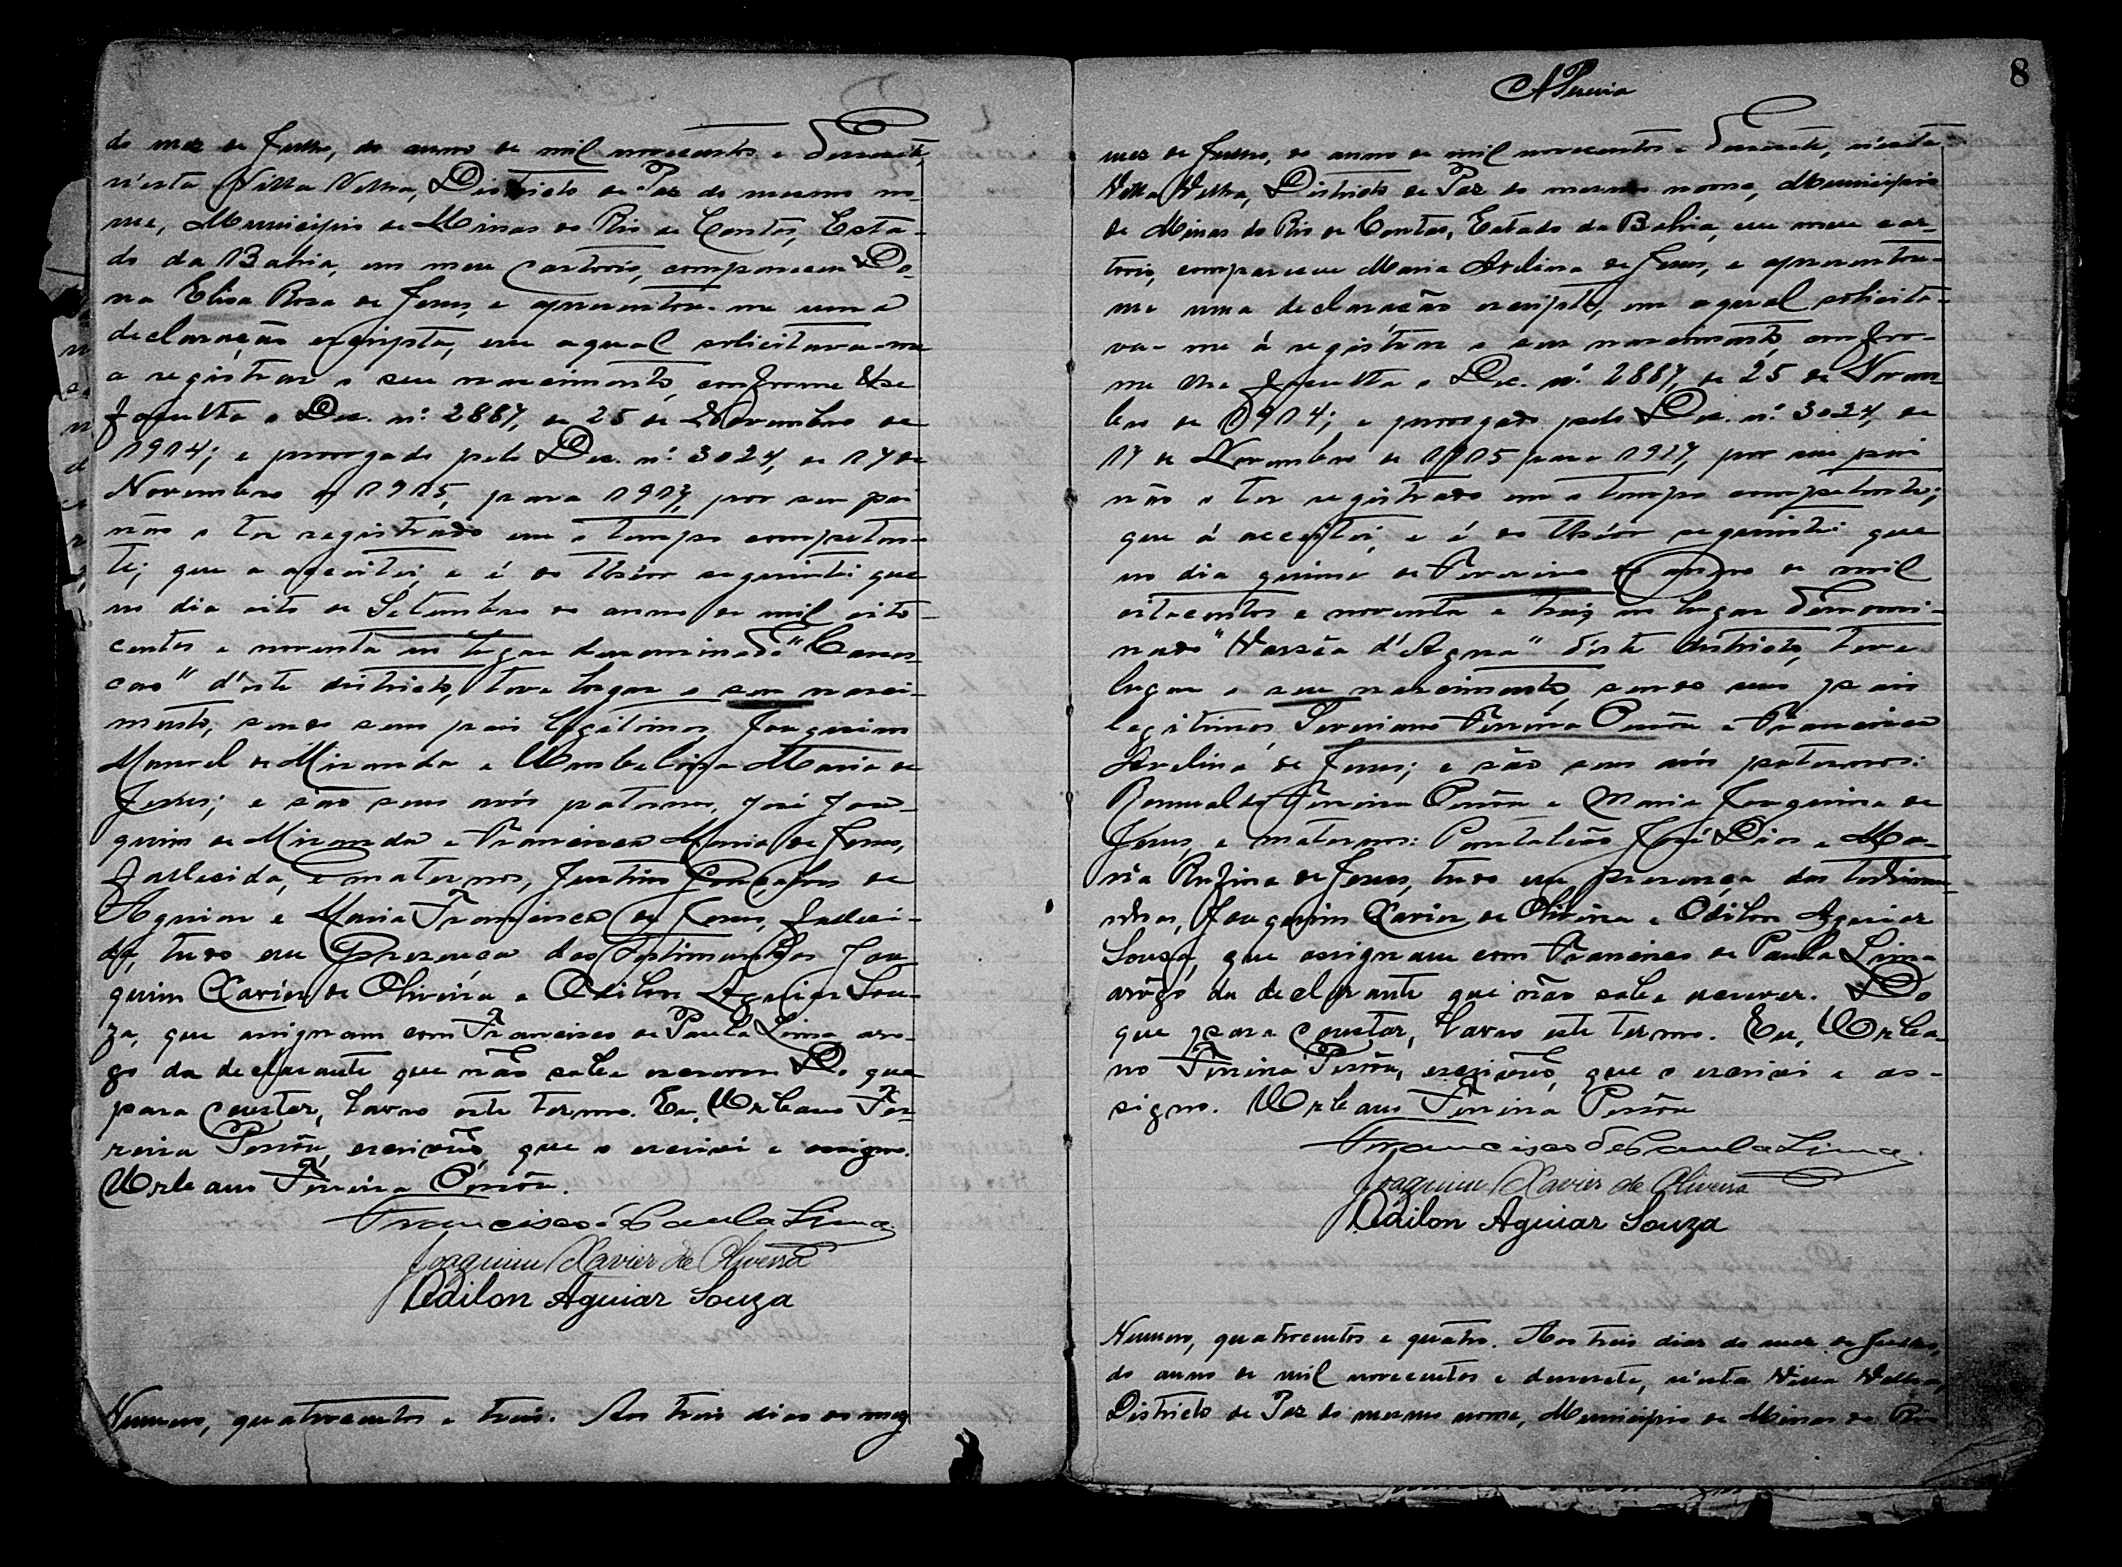 do mez de Julho, do anno de mil novecentos e desesete,
n'esta Villa Velha, Districto de Paz do mesmo no-
me, Municipio de Minas do Rio de Contas, Esta-
do da Bahia, em meu cartorio, compareceu Do-
na Elisa Rosa de Jesus, e apresentou-me uma
declaração escripta, em a qual solicitava-me
a registrar o seu nascimento, conforme lhe
faculta o Dec. nº 2887, de 25 de Novembro de
1914; e prorogado pelo Dec. nº 3024, de 17 de
Novembro de 1915, para 1917, por seu pai
não o ter registrado em o tempo competen-
te; que a acceitei, e é do theor seguinte: que
no dia oito de Setembro do anno de mil oito-
centos e noventa em lugar denominado
d'este districto, teve lugar o seu nasci-
mento, sendo seus pais legitimos, Joaquim
Manoel de Miranda e Umbelina Maria de
Jesus; e são seus avós paternos, José Joa-
quim de Miranda e Francisca Maria de Jesus,
fallecida, e maternos, Justino Gonçalves de
Aguiar e Maria Francisca de Jesus, falleci-
da, tudo em presença das testimunhas Joa-
quim Xavier de Oliveira e Odilon Aguiar Sou-
za, que assignam com Francisco de Paula Lima aro-
go da declarante que não sabe escrever. Do que
para constar, lavro este termo. Eu, Urbano Fer-
reira Pessôa, escrivão, que o escrevi e assigno.
Urbano Ferreira Pessôa.
Francisco de Paula Lima
Joaquim Xavier de Oliveira
Odilon Aguiar Souza
Numero, quatrocentos e treis. Aos treis dias do mez
8
mez de Julho, do anno de mil novecentos e desesete, n'esta
Villa Velha, Districto de Paz do mesmo nome, Municipio
de Minas do Rio de Contas, Estado da Bahia, em meu car-
torio, compareceu Maria Avelina de Jesus, e apresentou-
me uma declaração escripta, em a qual solicita-
va-me á registrar o seu nascimento, confor-
me lhe faculta o Dec. nº 2887, de 25 de Novem-
bro de 1914; e prorogado pelo Dec. nº 3024, de
17 de Novembro de 1915 para 1917, por seu pai
não o ter registrado em o tempo competente;
que á acceitei, e é do theor seguinte: que
no dia quinse de Fevereiro do anno de mil
oitocentos e noventa e treis em lugar denomi-
nado "Varsea d'Agua" d'este districto, teve
lugar o seu nascimento, sendo seus pais
legitimos, Severiano Ferreira Pessôa e Francisca
Avelina de Jesus; e são seus avós paternos:
Romualdo Ferreira Pessôa e Maria Joaquina de
Jesus, e maternos: Pantaleão José Dias e Ma-
ria Rufina de Jesus, tudo em presença das testimu-
nhas, Joaquim Xavier de Oliveira e Odilon Aguiar
Sousa, que assignam com Francisco de Paula Lima
arôgo da declarante que não sabe escrever. Do
que para constar, lavro este termo. Eu, Urba-
no Ferreira Pessôa, escrivão, que o escrevi e as-
signo. Urbano Ferreira Pessôa
Francisco de Paula Lima
Joaquim Xavier de Oliveira
Odilon Aguiar Souza
Numero, quatrocentos e quatro. Aos treis dias do mez de Julho,
do anno de mil novecentos e desesete, n'esta Villa Velha,
Districto de Paz do mesmo nome, Municipio de Minas do Rio